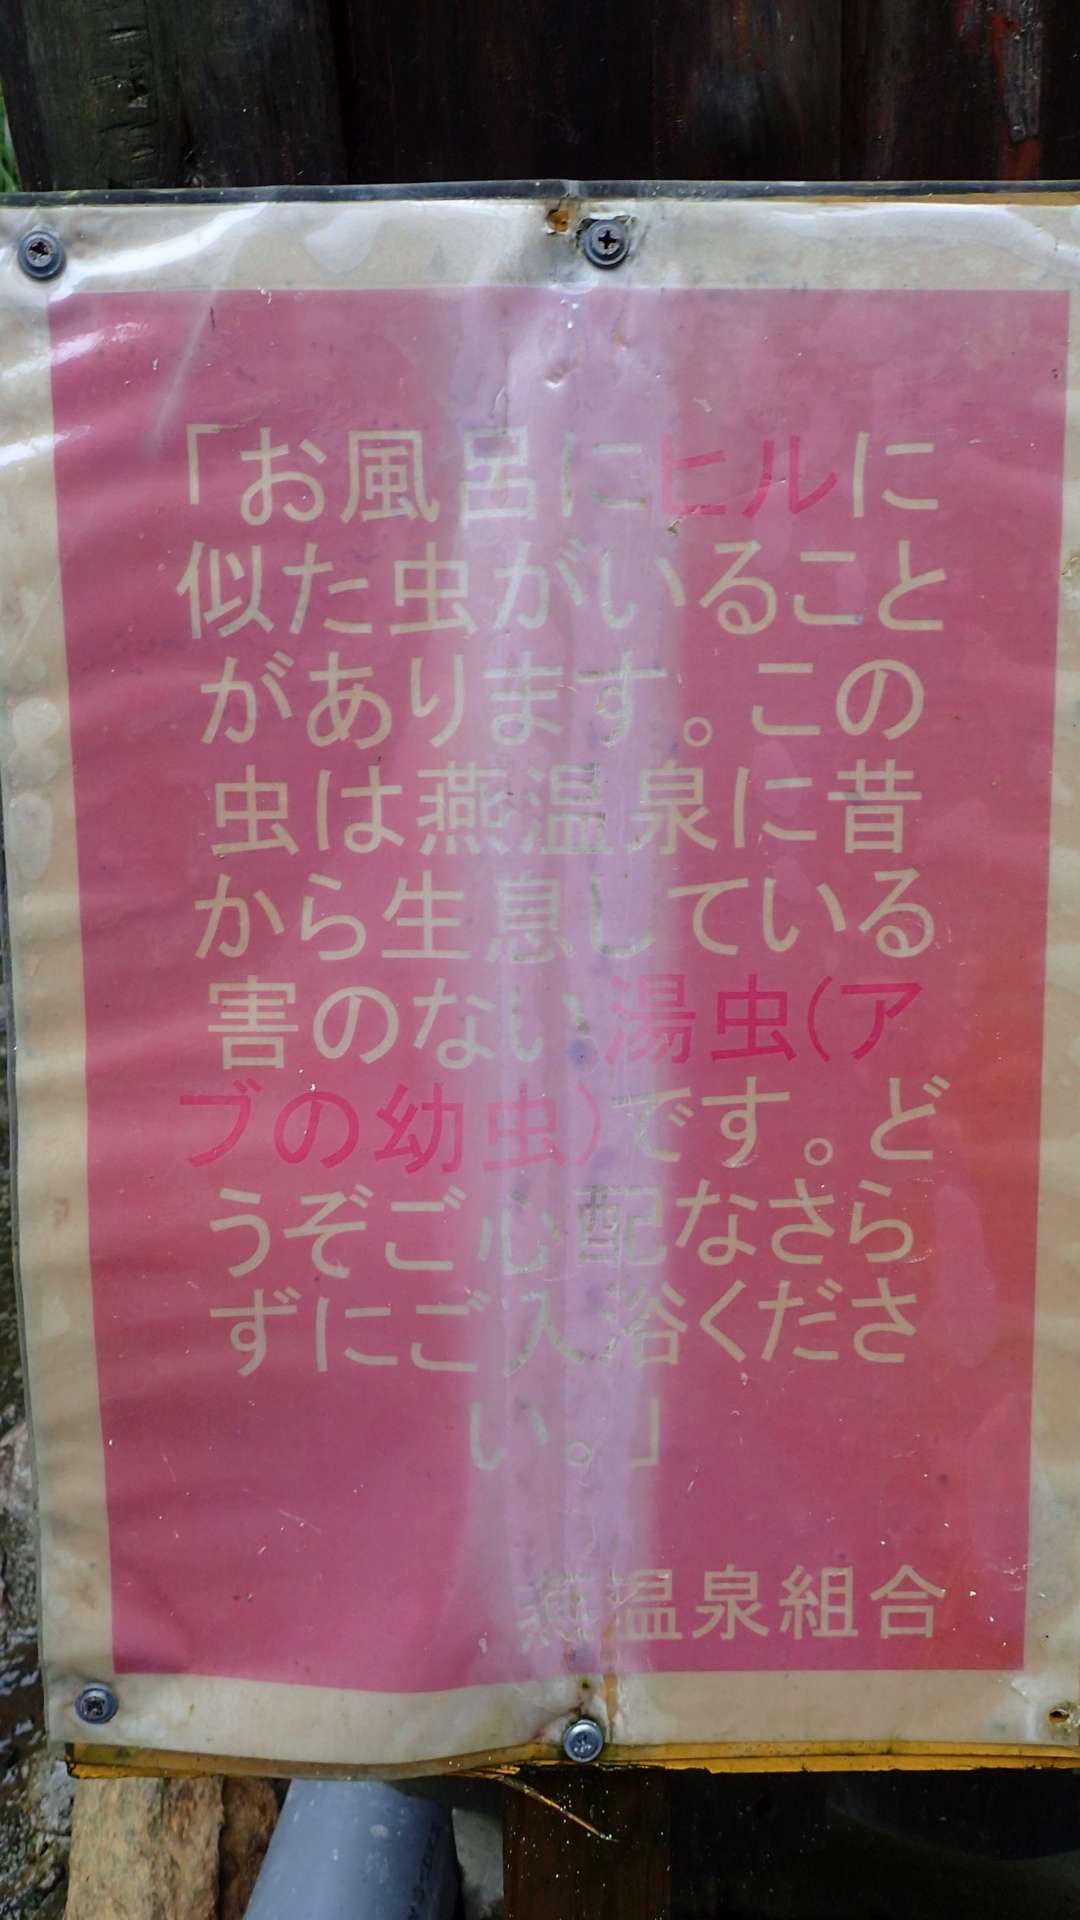 「お風呂にヒルに
似た虫がいること
があります。この
虫は燕温泉に昔
から生息している
害のない湯虫(ア
ブの幼虫)です。ど
うぞご心配なさら
ずにご入浴くださ
い。」
燕温泉組合